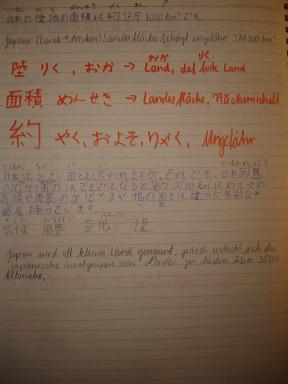 の陸地の面積は約37万8000km²です。
Japans (Land-strecken) Landesfläche beträgt ungefähr 378000km²
おか りく
陸 りく, おか → Land, das feste Land
面積 めんせき → Landesfläche, Flächeninhalt
約 やく, およそ, りゃく, Ungefähr.
日本は小さい国とよく言われますが、それでも、日本列島
の北から南のはてまでとなると、約3500kmにおよびその
を持っています
気候 風景 文化
Japan wird oft kleines Land genannt, jedoch erstreckt sich die
japanische Inselgruppe von Norden zu Süden über 3500
Kilometer.